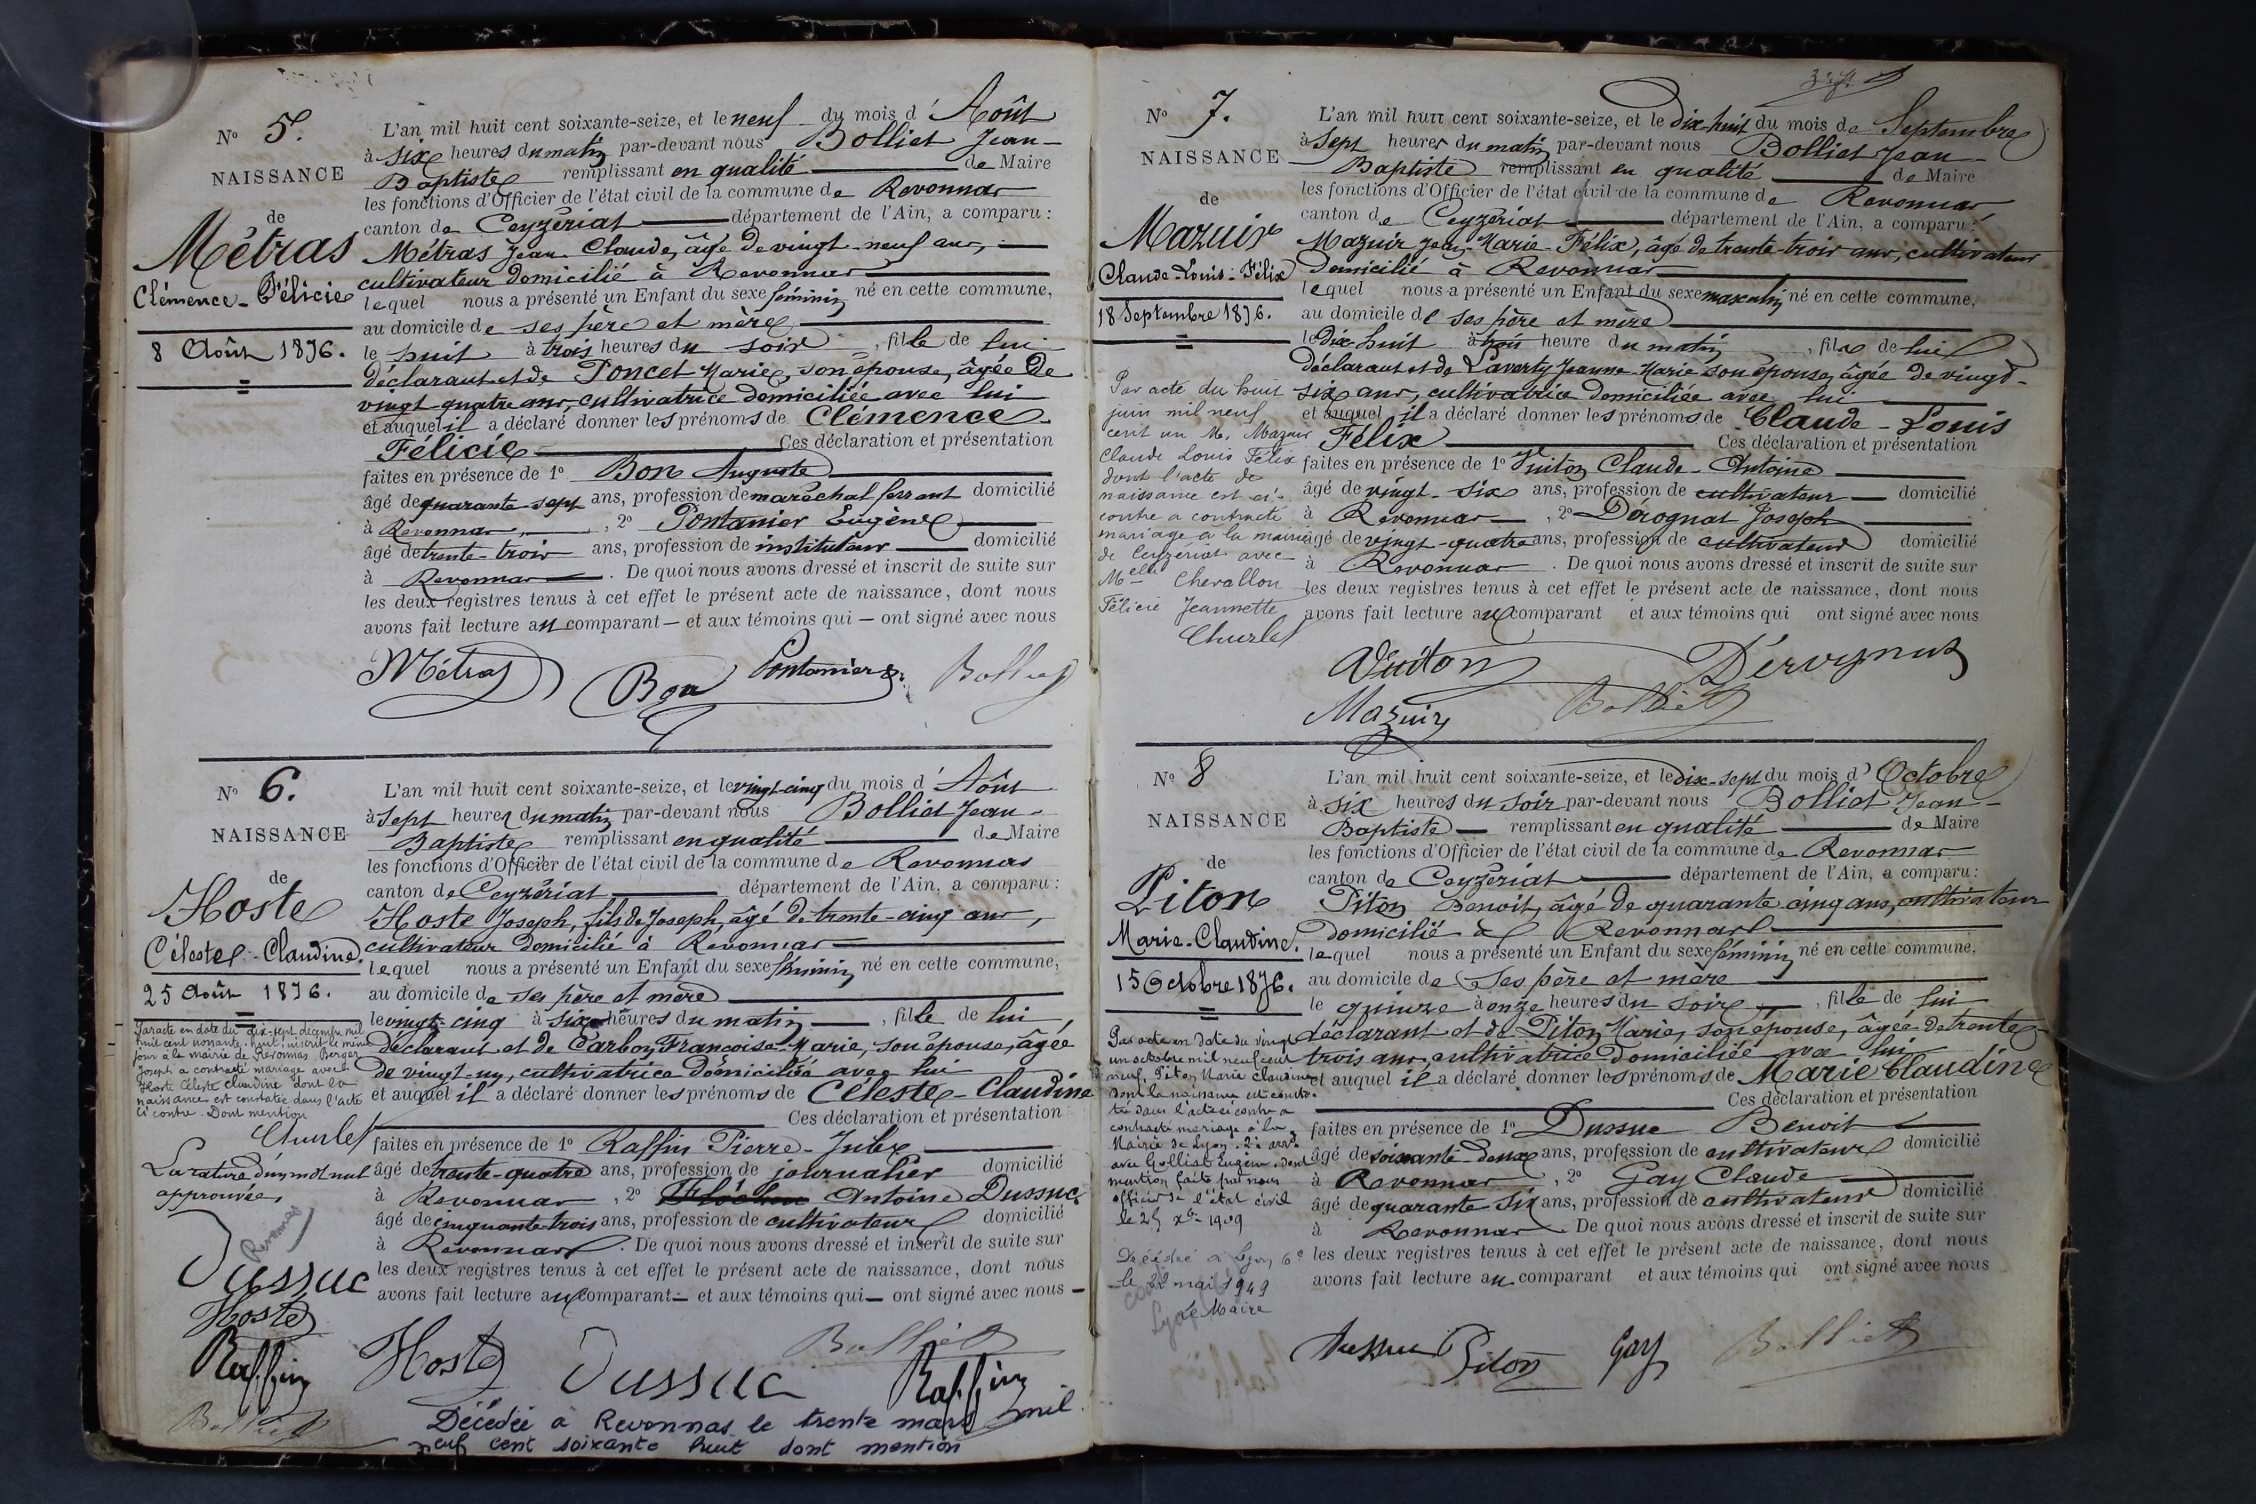 N° 5.
NAISSANCE
de
Métras
Clémence-Félicie
8 Août 1876.
L'an mil huit cent soixante-seize, et le neuf du mois d'Août
à six heures du matin par-devant nous Bolliet Jean-
Baptiste remplissant en qualité de Maire
les fonctions d'Officier de l'état civil de la commune de Revonnas
canton de Ceyzériat département de l'Ain, a comparu :
Métras Jean Claude, âgé de vingt-neuf ans,
cultivateur domicilié à Revonnas
lequel nous a présenté un Enfant du sexe féminin né en cette commune,
au domicile de ses père et mère
le huit à trois heures du soir, fille de lui
déclarant et de Poncet Marie, son épouse, âgée de
vingt quatre ans, cultivatrice domiciliée avec lui
et auquel il a déclaré donner les prénoms de Clémence
Félicie Ces déclaration et présentation
faites en présence de 1° Bon Auguste
âgé de quarante sept ans, profession de maréchal ferrant domicilié
à Revonnas, 2° Pontanier Eugène
âgé de trente-trois ans, profession de instituteur domicilié
à Revonnas. De quoi nous avons dressé et inscrit de suite sur
les deux registres tenus à cet effet le présent acte de naissance, dont nous
avons fait lecture au comparant — et aux témoins qui — ont signé avec nous
Métras Bon Pontanier E. Bolliet
N° 6.
NAISSANCE
de
Hoste
Céleste-Claudine.
25 Août 1876.
Par acte en date du dix-sept décembre mil
huit cent nonante-huit, inscrit le même
jour à la mairie de Revonnas, Berger
Joseph a contracté mariage avec
Hoste Céleste Claudine dont la
naissance est constatée dans l'acte
ci contre. Dont mention
Churlet
La rature d'un mot nul
approuvée,
Revonnas
Dussuc
Hoste
Raffin
Bolliet
L'an mil huit cent soixante-seize, et le vingt-cinq du mois d'Août
à sept heures du matin par-devant nous Bolliet Jean-
Baptiste remplissant en qualité de Maire
les fonctions d'Officier de l'état civil de la commune de Revonnas
canton de Ceyzériat département de l'Ain, a comparu :
Hoste Joseph, fils de Joseph, âgé de trente-cinq ans,
cultivateur domicilié à Revonnas
lequel nous a présenté un Enfant du sexe féminin né en cette commune,
au domicile de ses père et mère
le vingt-cinq à six heures du matin, fille de lui
déclarant et de Carbon Françoise-Marie, son épouse, âgée
de vingt-un, cultivatrice domiciliée avec lui
et auquel il a déclaré donner les prénoms de Céleste-Claudine
Ces déclaration et présentation
faites en présence de 1° Raffin Pierre-Jules
âgé de trente-quatre ans, profession de journalier domicilié
à Revonnas, 2° Antoine Dussuc
âgé de cinquante-trois ans, profession de cultivateur domicilié
à Revonnas. De quoi nous avons dressé et inscrit de suite sur
les deux registres tenus à cet effet le présent acte de naissance, dont nous
avons fait lecture au comparant — et aux témoins qui — ont signé avec nous —
Hoste Dussuc Bolliet Raffin
Décédée à Revonnas le trente mars mil
neuf cent soixante huit dont mention
N° 7.
NAISSANCE
de
Mazuir
Claude-Louis-Félix
18 Septembre 1876.
Par acte du huit
juin mil neuf
cent un M. Mazuir
Claude Louis Félix
dont l'acte de
naissance est ci-
contre a contracté
mariage à la mairie
de Ceyzériat avec
Melle Chevallon
Félicie Jeannette
Churlet
L'an mil huit cent soixante-seize, et le dix-huit du mois de Septembre
à sept heures du matin par-devant nous Bolliet Jean-
Baptiste remplissant en qualité de Maire
les fonctions d'Officier de l'état civil de la commune de Revonnas
canton de Ceyzériat département de l'Ain, a comparu :
Mazuir Jean-Marie-Félix, âgé de trente-trois ans, cultivateur
domicilié à Revonnas
lequel nous a présenté un Enfant du sexe masculin né en cette commune,
au domicile de ses père et mère
le dix-huit à trois heure du matin, fils de lui
déclarant et de Laverty Jeanne-Marie son épouse, âgée de vingt-
six ans, cultivatrice domiciliée avec lui
et auquel il a déclaré donner les prénoms de Claude-Louis
Félix Ces déclaration et présentation
faites en présence de 1° Vuiton Claude-Antoine
âgé de vingt-six ans, profession de cultivateur domicilié
à Revonnas, 2° Dérognat Joseph
âgé de vingt-quatre ans, profession de cultivateur domicilié
à Revonnas. De quoi nous avons dressé et inscrit de suite sur
les deux registres tenus à cet effet le présent acte de naissance, dont nous
avons fait lecture au comparant et aux témoins qui ont signé avec nous
Vuiton Dérognat
Mazuir Bolliet
N° 8
NAISSANCE
de
Piton
Marie-Claudine.
15 Octobre 1876.
Par acte en date du vingt
un octobre mil neuf cent
neuf, Piton Marie Claudine
dont la naissance est consta-
tée dans l'acte ci contre a
contracté mariage à la
Mairie de Lyon 2e arrt
avec Golliat Eugène, dont
mention faite par nous
officier de l'état civil
le 25 xbre 1909
Décédée à Lyon 6e
le 22 mai 1949
Le Maire
L'an mil huit cent soixante-seize, et le dix-sept du mois d'Octobre
à six heures du soir par-devant nous Bolliet Jean-
Baptiste remplissant en qualité de Maire
les fonctions d'Officier de l'état civil de la commune de Revonnas
canton de Ceyzériat département de l'Ain, a comparu :
Piton Benoit, âgé de quarante cinq ans, cultivateur
domicilié à Revonnas
lequel nous a présenté un Enfant du sexe féminin né en cette commune,
au domicile de ses père et mère
le quinze à onze heures du soir, fille de lui
déclarant et de Piton Marie, son épouse, âgée de trente-
trois ans, cultivatrice domiciliée avec lui
et auquel il a déclaré donner les prénoms de Marie Claudine
Ces déclaration et présentation
faites en présence de 1° Dussuc Benoit
âgé de soixante-deux ans, profession de cultivateur domicilié
à Revonnas, 2° Gay Claude
âgé de quarante six ans, profession de cultivateur domicilié
à Revonnas. De quoi nous avons dressé et inscrit de suite sur
les deux registres tenus à cet effet le présent acte de naissance, dont nous
avons fait lecture au comparant et aux témoins qui ont signé avec nous
Dussuc Piton Gay Bolliet